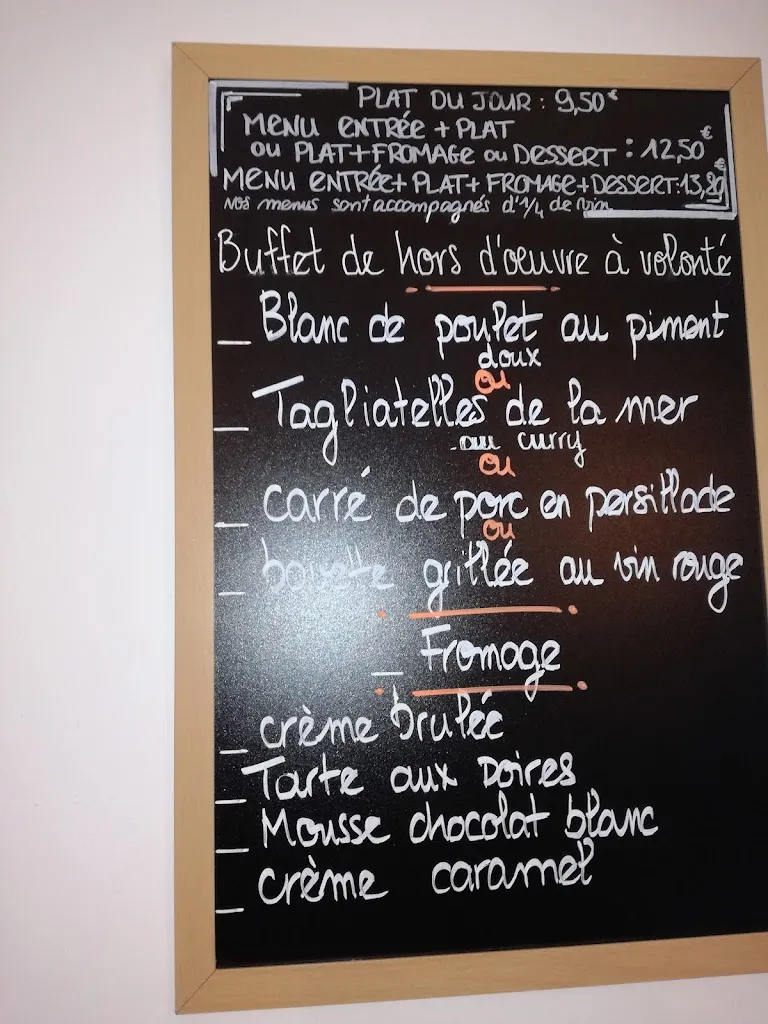 PLAT DU JOUR : 9,50€
MENU ENTRÉE + PLAT
OU PLAT+FROMAGE OU DESSERT : 12,50€
MENU ENTRÉE+ PLAT+ FROMAGE+DESSERT:13,80€
Nos menus sont accompagnés d'1/4 de vin
Buffet de hors d'oeuvre à volonté
_ Blanc de poulet au piment
doux
ou
_ Tagliatelles de la mer
au curry
ou
_ carré de porc en persillade
ou
_ bavette grillée au vin rouge
_ Fromage
_ crème brulée
_ Tarte aux poires
_ Mousse chocolat blanc
_ crème caramel